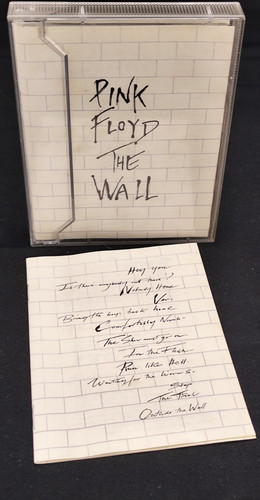 PINK
FLOYD
THE
WALL
Hey you
Is there anybody out there?
Nobody Home
Vera
Bring the boys back home
Comfortably Numb
The Show must go on
In the Flesh
Run like Hell
Waiting for the Worms
Stop
The Trial
Outside the Wall